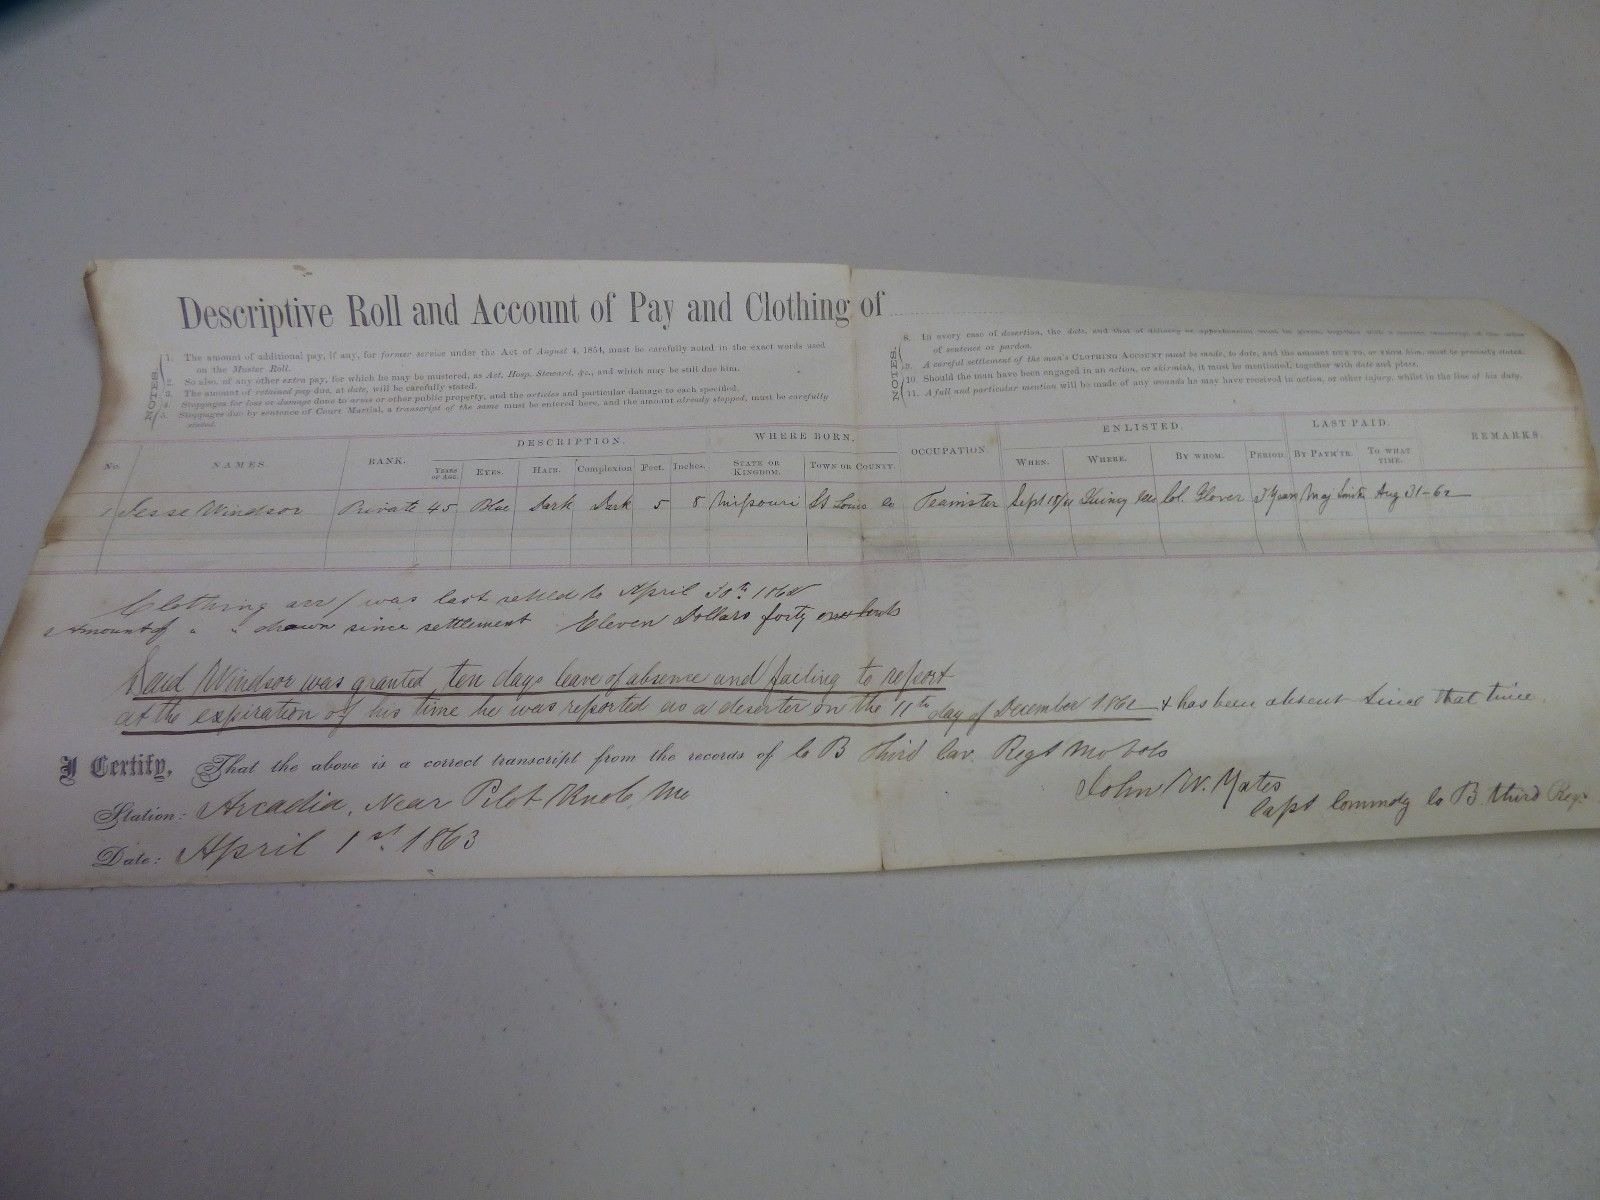 Descriptive Roll and Account of Pay and Clothing of
NOTES.
1. The amount of additional pay, if any, for former service under the Act of August 4, 1854, must be carefully noted in the exact words used
on the Muster Roll.
2. So also, of any other extra pay, for which he may be mustered, as Act. Hosp. Steward, &c., and which may be still due him.
3. The amount of retained pay due, at date, will be carefully stated.
4. Stoppages for loss or damage done to arms or other public property, and the articles and particular damage to each specified.
5. Stoppages due by sentence of Court Martial, a transcript of the same must be entered here, and the amount already stopped, must be carefully
stated.
NOTES.
8. In every case of desertion, the date, and that of delivery or apprehension must be given, together with a
of sentence or pardon.
9. A careful settlement of the man's CLOTHING ACCOUNT must be made, to date, and the amount DUE TO, or FROM him, must be precisely stated.
10. Should the man have been engaged in an action, or skirmish, it must be mentioned, together with date and place.
11. A full and particular mention will be made of any wounds he may have received in action, or other injury, whilst in the line of his duty.
No. NAMES. RANK. DESCRIPTION. WHERE BORN. OCCUPATION. ENLISTED. LAST PAID. REMARKS
YEARS OF AGE. EYES. HAIR. Complexion Feet. Inches. STATE OR KINGDOM. TOWN OR COUNTY. WHEN. WHERE. BY WHOM. PERIOD. BY PAYM'TR. TO WHAT TIME.
1 Jesse Windsor Private 45 Blue Dark Dark 5 8 Missouri St Louis Co Teamster Sept 18/61 Quincy Ills Col. Glover 3 Years Maj Smith Aug 31-62
Clothing acc/ was last settled to April 30th 1862
Amount of " " drawn since settlement Eleven Dollars forty one Cents
Said Windsor was granted ten days leave of absence and failing to report
at the expiration of his time he was reported as a deserter on the 11th day of December 1862 & has been absent since that time.
I Certify, That the above is a correct transcript from the records of Co B Third Cav. Regt Mo Vols
John W. Yates
Station: Arcadia, Near Pilot Knob Mo
Capt Commdg Co B third Regt
Date: April 1st. 1863